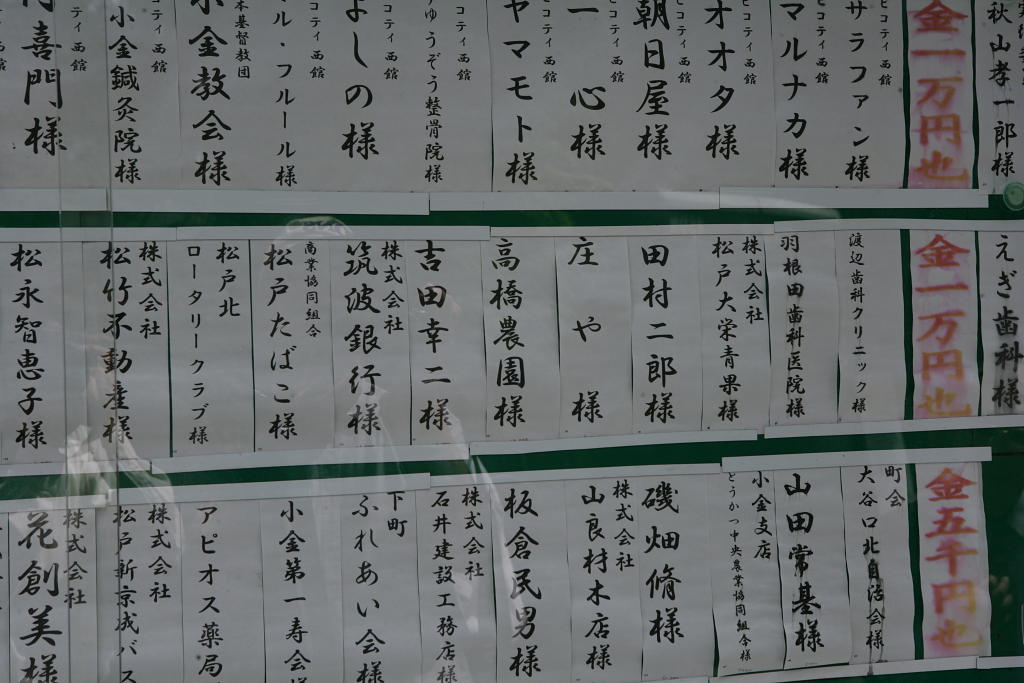 秋山孝一郎様
金一万円也
ピコティ西館
サラファン様
ピコティ西館
マルナカ様
ピコティ西館
オオタ様
ピコティ西館
朝日屋様
ピコティ西館
一心様
ピコティ西館
ヤマモト様
ピコティ西館
ゆうぞう整骨院様
ピコティ西館
よしの様
ピコティ西館
ル・フルール様
本基督教団
小金教会様
ピコティ西館
小金鍼灸院様
ティ西館
喜門様
えぎ歯科様
金一万円也
渡辺歯科クリニック様
羽根田歯科医院様
株式会社
松戸大栄青果様
田村二郎様
庄や様
高橋農園様
吉田幸二様
株式会社
筑波銀行様
商業協同組合
松戸たばこ様
松戸北
ロータリークラブ様
株式会社
松竹不動産様
松永智恵子様
金五千円也
町会
大谷口北自治会様
山田常基様
小金支店
とうかつ中央農業協同組合様
磯畑脩様
株式会社
山良材木店様
板倉民男様
株式会社
石井建設工務店様
下町
ふれあい会様
小金第一寿会様
アピオス薬局
株式会社
松戸新京成バス
株式会社
花創美様